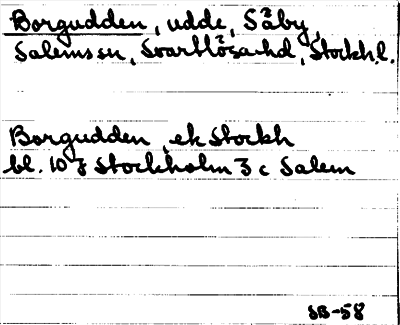 Borgudden, udde, Säby,
Salems sn, Svartlösa hd, Stockh. l.
Borgudden, ek Stockh
bl. 10 J Stockholm 3 c Salem
SB-58